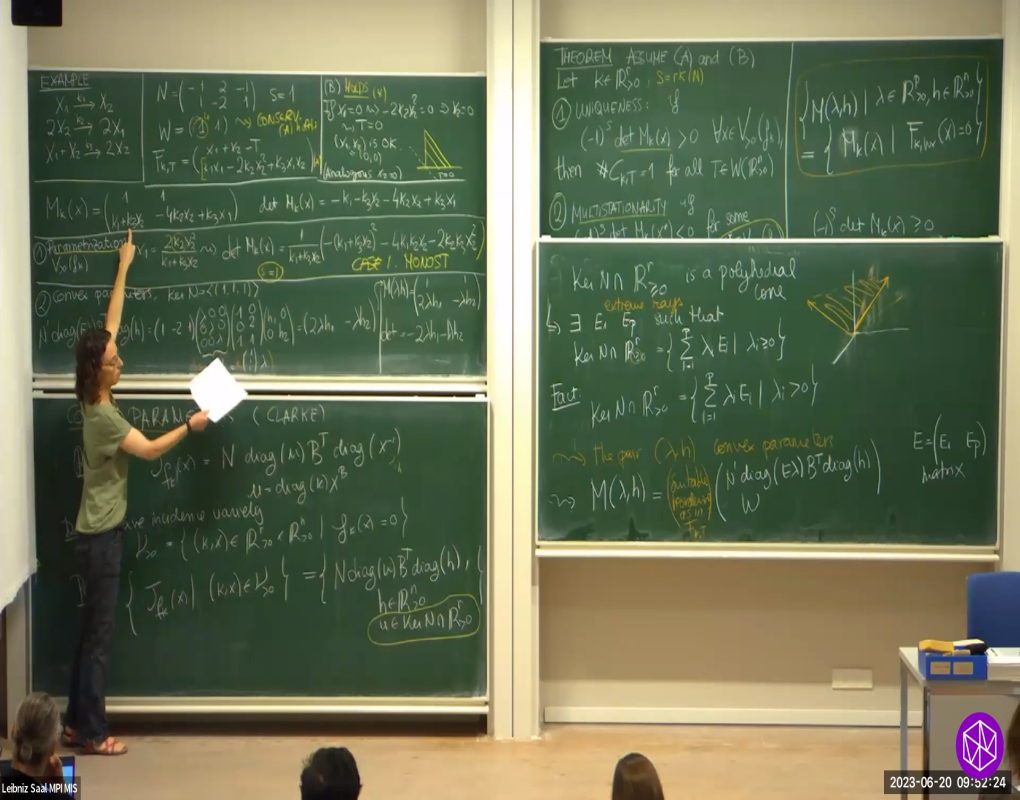 EXAMPLE
X₁ →k₁ X₂
2X₂ →k₂ 2X₁
X₁+X₂ →k₃ 2X₂
N = (-1 2 -1
1 -2 1) s=1
W = (1 1) ⇝ CONSERV.
F_{k,T} = (x₁+x₂-T
k₁x₁-2k₂x₂²+k₃x₁x₂)
(B) HOLDS (✓)
If x₁=0 ⇝ -2k₂x₂²=0 ⇒ x₂=0
⇝ T=0
(0,0)
is OK
(Analogous x₂=0)
T=0
M_k(x) = (1 1
k₁+k₃x₂ -4k₂x₂+k₃x₁) det M_k(x) = -k₁-k₃x₂-4k₂x₂+k₃x₁
① Parametrization
V_{>0}(f_k)
x₁ = 2k₂x₂²/(k₁+k₃x₂) ⇝ det M_k(x) = 1/(k₁+k₃x₂) (-(k₁+k₃x₂)²-4k₁k₂x₂-2k₂k₃x₂²)
s=1
CASE 1. MONOST
② Convex parameters,
= (2λh₁ -λh₂)
M(λ,h) = (1 1
2λh₁ -λh₂)
det = -2λh₁-λh₂
PARAM (CLARKE)
f_k(x) = N diag(u) B^T diag(x⁻¹)
u = diag(k) x^B
incidence variety
V_{>0} = {(k,x) ∈ ℝ^r_{>0} × ℝ^n_{>0} | f_k(x)=0}
{J_{f_k}(x) | (k,x) ∈ V_{>0}} = {N diag(u) B^T diag(h),
h ∈ ℝ^n_{>0}
u ∈ Ker N ∩ ℝ^r_{>0}
THEOREM ASSUME (A) and (B)
Let k ∈ ℝ^r_{>0}, s=rk(N)
① UNIQUENESS: if
(-1)^s det M_k(x) > 0 ∀x∈V_{>0}(f_k),
then #C_{k,T}=1 for all T∈W(ℝ^n_{>0})
② MULTISTATIONARITY if
for some
{M(λ,h) | λ∈ℝ^p_{>0}, h∈ℝ^n_{>0}}
= {M_k(x) | F_{k,Wx}(x)=0}
(-1)^s det M_k(x) ≥ 0
Ker N ∩ ℝ^r_{≥0} is a polyhedral
cone
extreme rays
↳ ∃ E₁ E_p such that
Ker N ∩ ℝ^r_{≥0} = {∑_{i=1}^p λ_i E_i | λ_i≥0}
Fact:
Ker N ∩ ℝ^r_{>0} = {∑_{i=1}^p λ_i E_i | λ_i>0}
⇝ the pair (λ,h) convex parameters
⇝ M(λ,h) = (N' diag(Eλ) B^T diag(h)
W)
suitable
reordering
as in
F_{k,T}
E=(E₁ E_p)
matrix
Leibniz Saal MPI MIS
2023-06-20 09:52:24